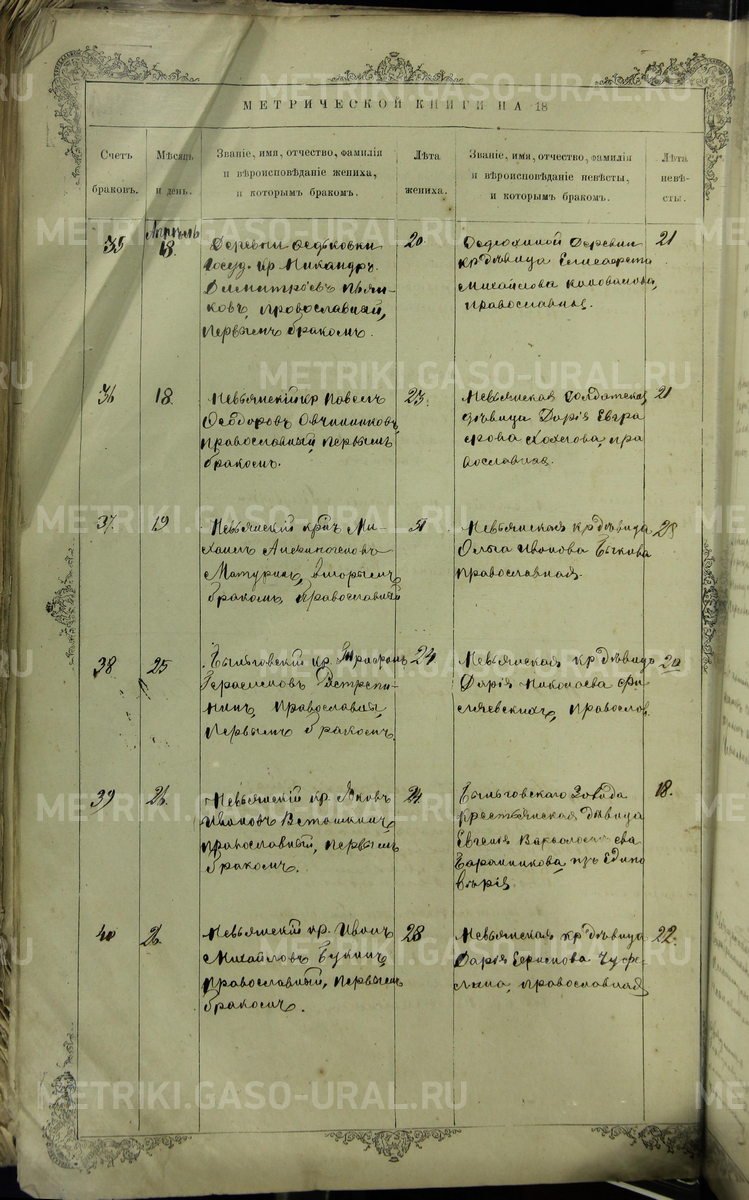 МЕТРИЧЕСКОЙ КНИГИ НА 18
Счетъ браковъ.
Мѣсяцъ и день.
Званіе, имя, отчество, фамилія
и вѣроисповѣданіе жениха,
и которымъ бракомъ.
Лѣта жениха.
Званіе, имя, отчество, фамилія
и вѣроисповѣданіе невѣсты,
и которымъ бракомъ.
Лѣта невѣ-
сты.
35
Апрѣль
18.
Деревни Федьковки
Госуд. кр. Никандръ
Димитріевъ Пьян-
ковъ, православный,
первымъ бракомъ.
20
Федюхиной деревни
кр. дѣвица Елисавета
Михайлова
православная.
21
36
18.
Невьянскій кр Павелъ
Ѳеодоровъ Овчинниковъ,
православный первымъ
бракомъ.
23.
Невьянская Солдатская
дѣвица Дарія Евгра
фова Хохлова, пра
вославная.
21
37.
19
Невьянскій Ми-
хаилъ
вторымъ
бракомъ, православный
51
Невьянская кр дѣвица
Ольга Иванова Быкова
православная.
28
38
25
Быньговскій кр. Трифонъ
Герасимовъ
православн,
первымъ бракомъ.
24.
Невьянская кр дѣвица
Дарія Николаева
православ.
20
39
26.
Невьянскій кр. Яковъ
Ивановъ
православный, первымъ
бракомъ.
24.
Быньговскаго Завода
крестьянская дѣвица
Евгенія Варѳоломеева
Баранникова, изъ Едино
вѣрія.
18.
40
26.
Невьянскій кр. Иванъ
Михайловъ Букинъ,
православный, первымъ
бракомъ.
28
Невьянская кр дѣвица
Дарія Борисова
православная
22.
METRIKI.GASO-URAL.RU